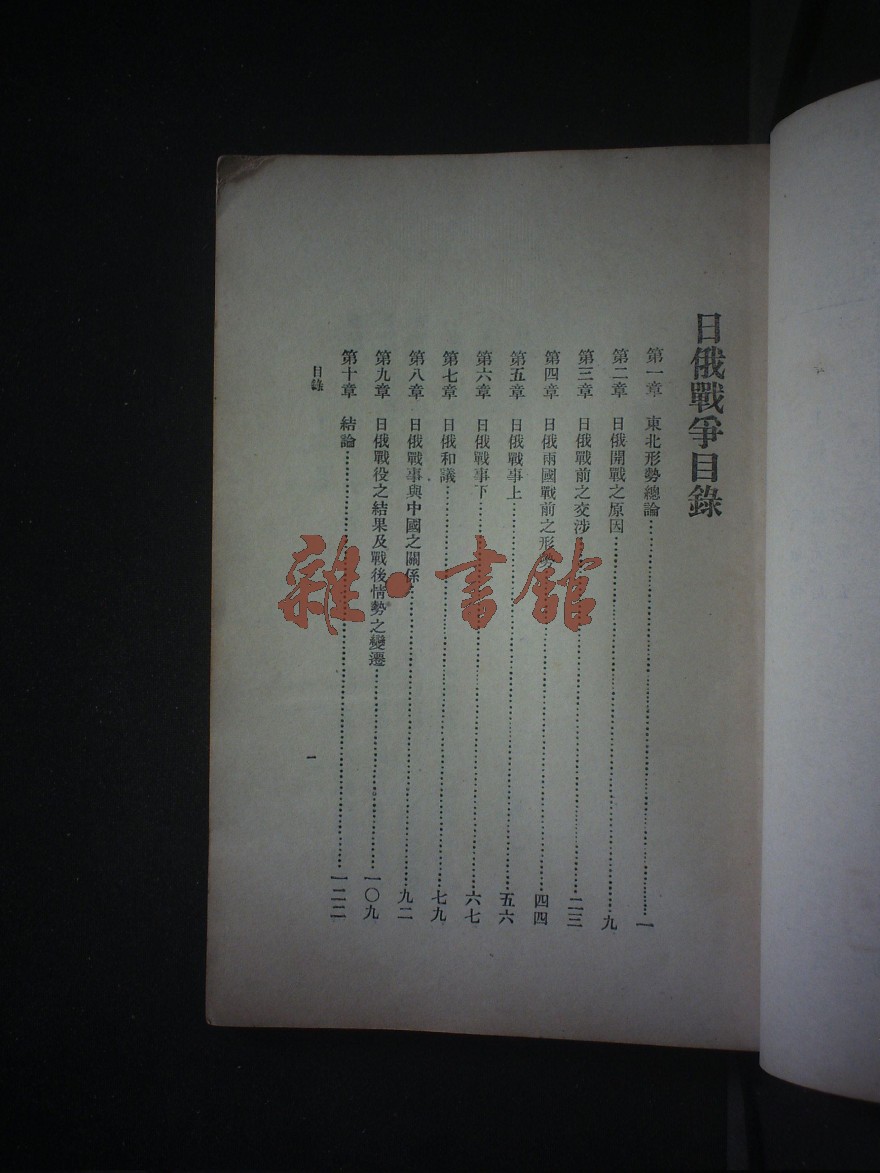 日俄戰爭目錄
第一章 東北形勢總論……一
第二章 日俄開戰之原因……九
第三章 日俄戰前之交涉……二三
第四章 日俄兩國戰前之形勢……四四
第五章 日俄戰事上……五六
第六章 日俄戰事下……六七
第七章 日俄和議……七九
第八章 日俄戰事與中國之關係……九二
第九章 日俄戰役之結果及戰後情勢之變遷……一〇九
第十章 結論……一二二
目錄
一
雜·書館